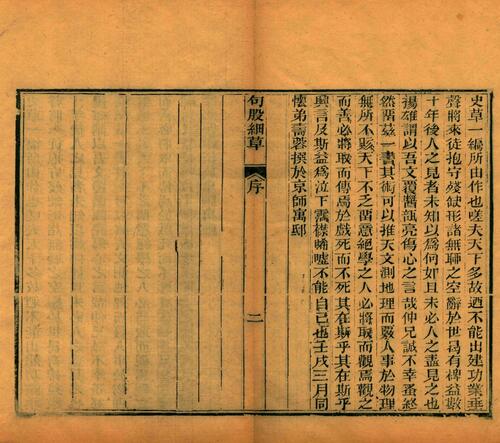 史草一編所由作也嗟夫天下多故迺不能出建功業垂
聲將來徒抱守殘缺形諸無聊之空辭於世曷有碑益數
十年後人之見者未知以爲何如且未必人之盡見之也
揚雄謂以吾文覆醬瓿亮傷心之言哉仲兄誠不幸蚤終
然留茲一書其術可以推天文測地理而覈人事於物理
無所不賅天下不乏留意絕學之人必將取而觀焉觀之
而善必將取而傳焉於戲死而不死其在斯乎其在斯乎
興言及斯益爲泣下霑襟唏噓不能自己也壬戌三月同
懷弟壽蓉撰於京師寓邸
句股細草
序
二